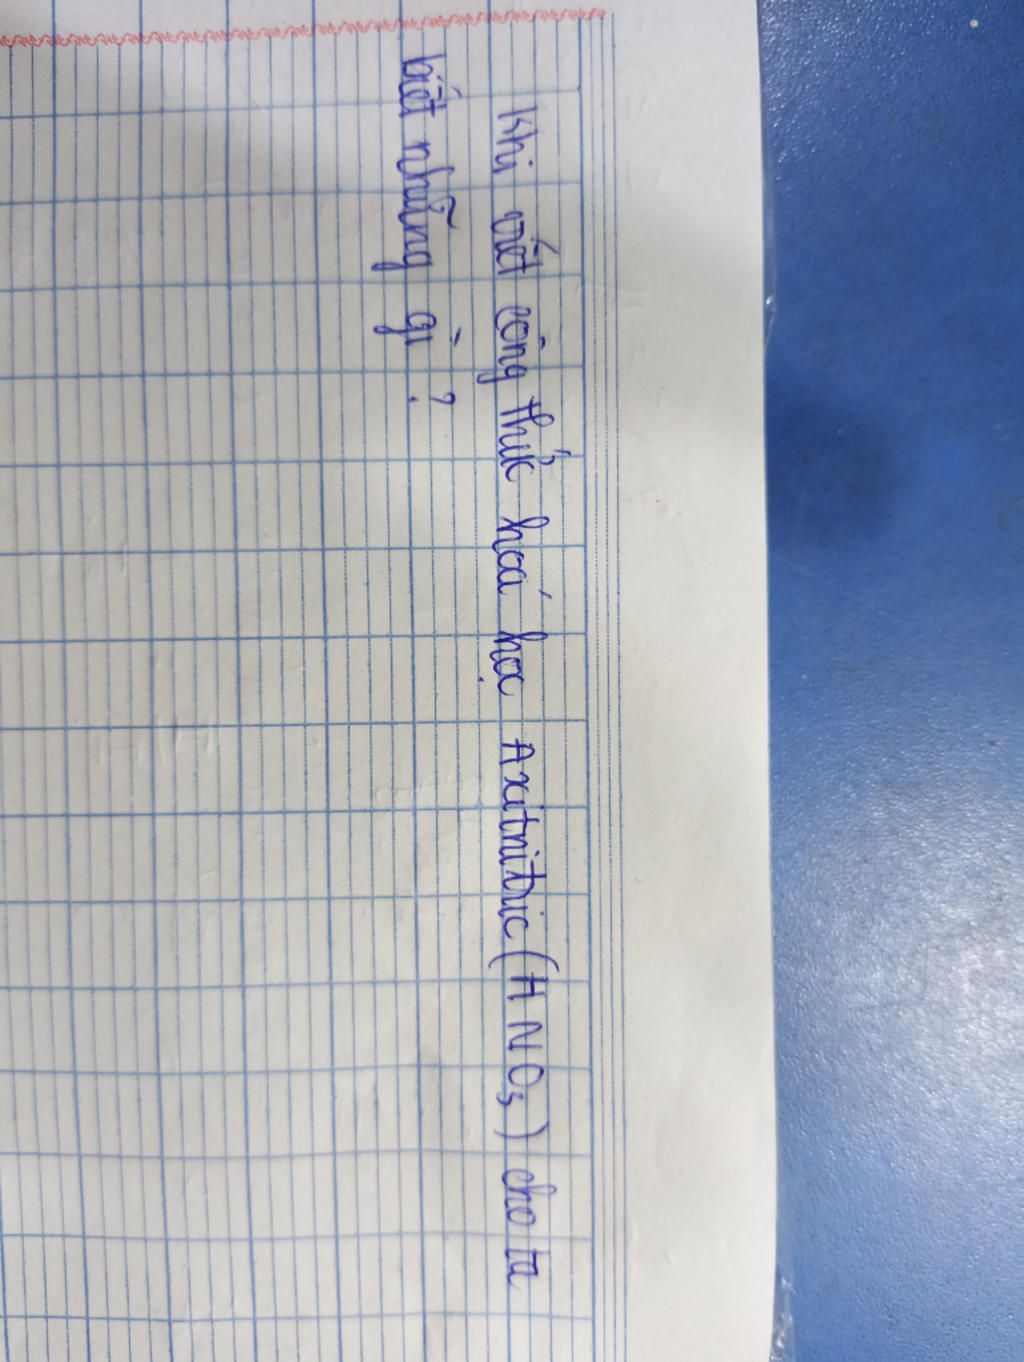 Khi viết công thức hoá học Axitnitric (HNO₃) cho ta
biết những gì ?